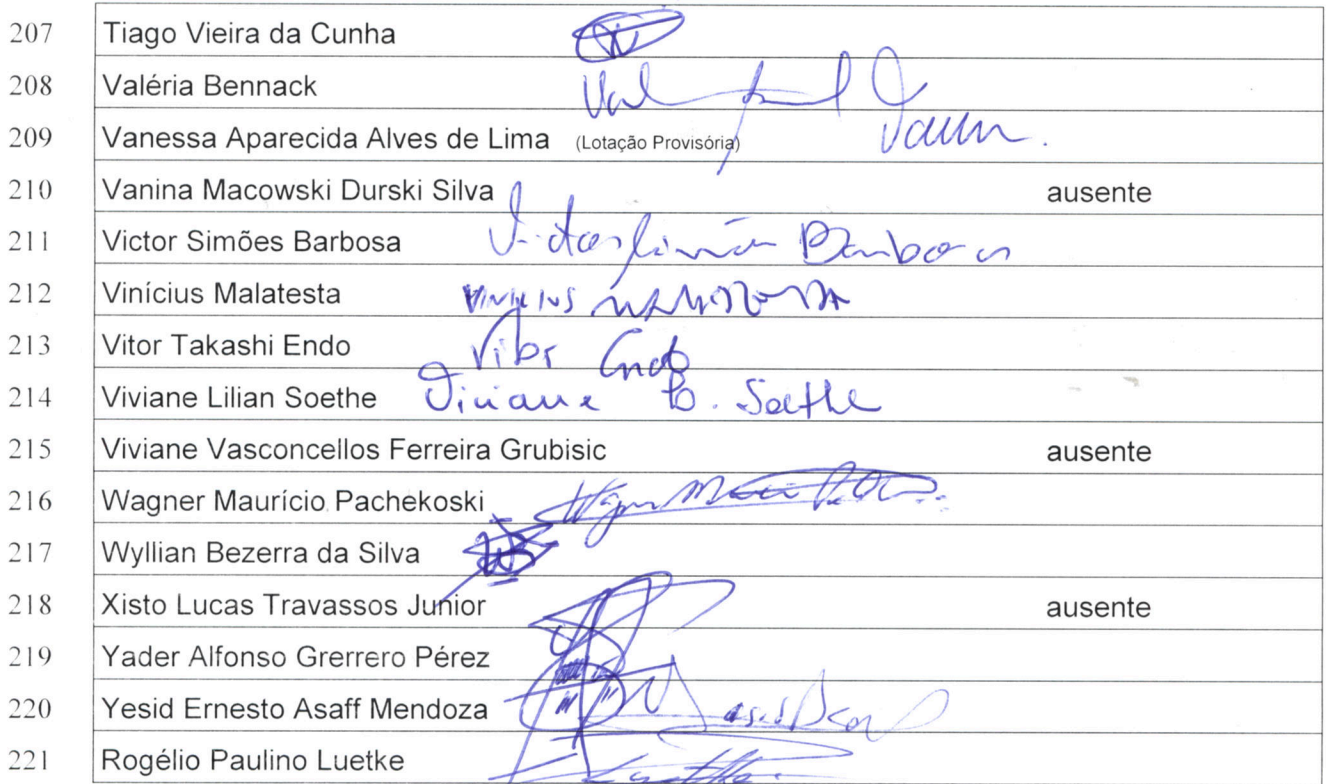 207 Tiago Vieira da Cunha
208 Valéria Bennack
209 Vanessa Aparecida Alves de Lima (Lotação Provisória)
210 Vanina Macowski Durski Silva ausente
211 Victor Simões Barbosa Barbosa
212 Vinícius Malatesta VINICIUS MALATESTA
213 Vitor Takashi Endo Vitor Endo
214 Viviane Lilian Soethe Viviane L. Soethe
215 Viviane Vasconcellos Ferreira Grubisic ausente
216 Wagner Maurício Pachekoski
217 Wyllian Bezerra da Silva
218 Xisto Lucas Travassos Junior ausente
219 Yader Alfonso Grerrero Pérez
220 Yesid Ernesto Asaff Mendoza
221 Rogélio Paulino Luetke